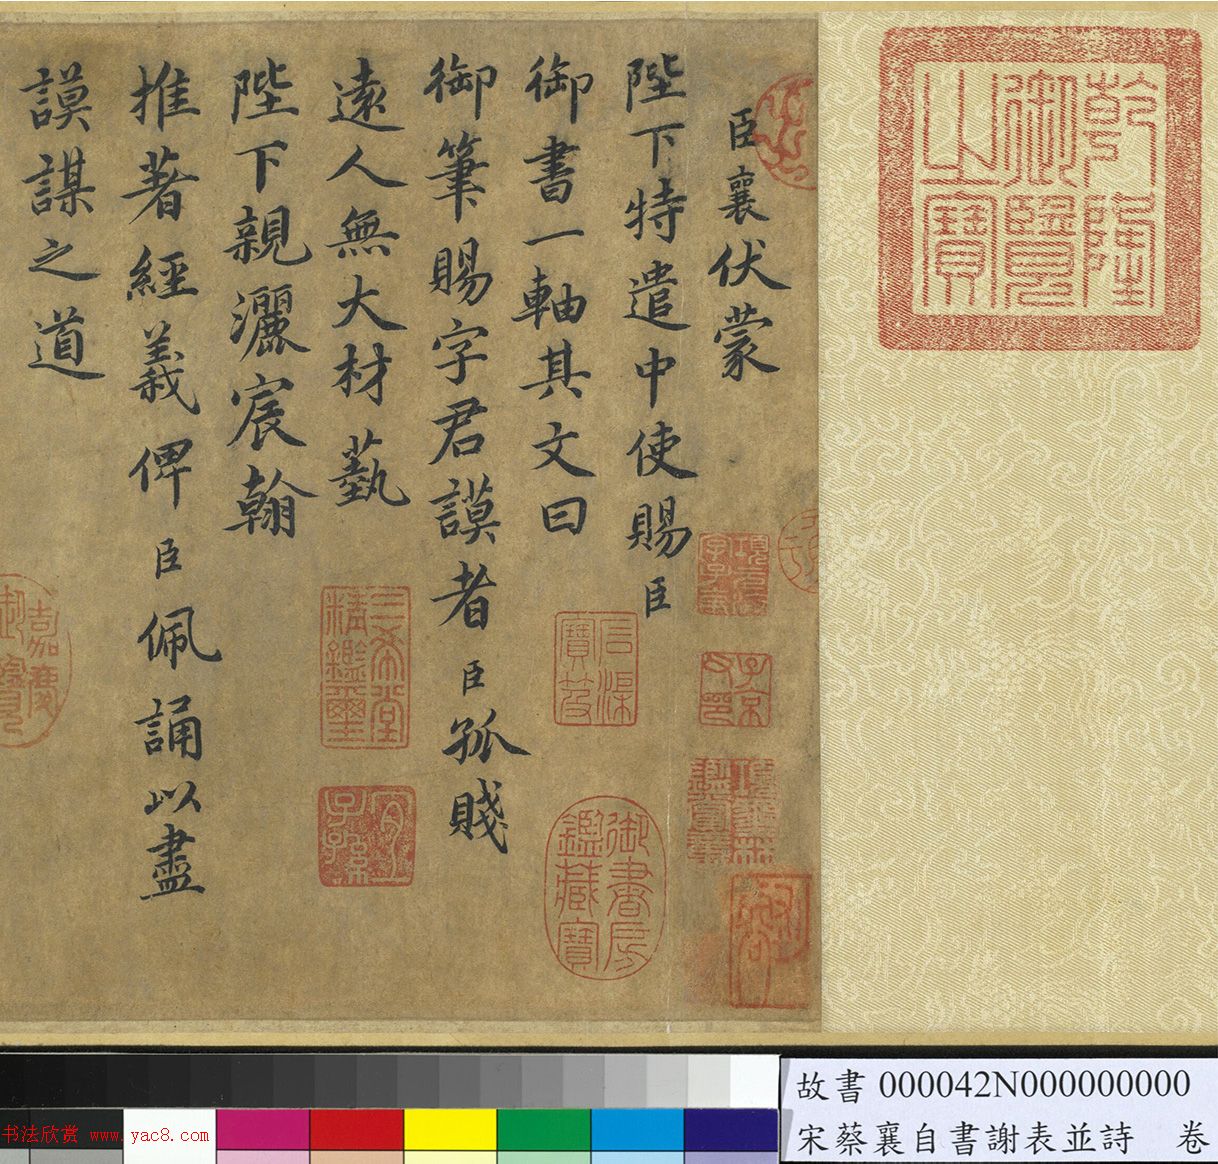 乾隆
御覽
之寶
臣襄伏蒙
陛下特遣中使賜臣
御書一軸其文曰
御筆賜字君謨者臣孤賤
遠人無大材藝
陛下親灑宸翰
推著經義俾臣佩誦以盡
謨謀之道
子京
父印
信渠
寶笈
御書房
鑑藏寶
三希堂
精鑑璽
宜
子孫
嘉慶
御覽
故書 000042N000000000
宋蔡襄自書謝表並詩 卷
书法欣赏 www.yac8.com